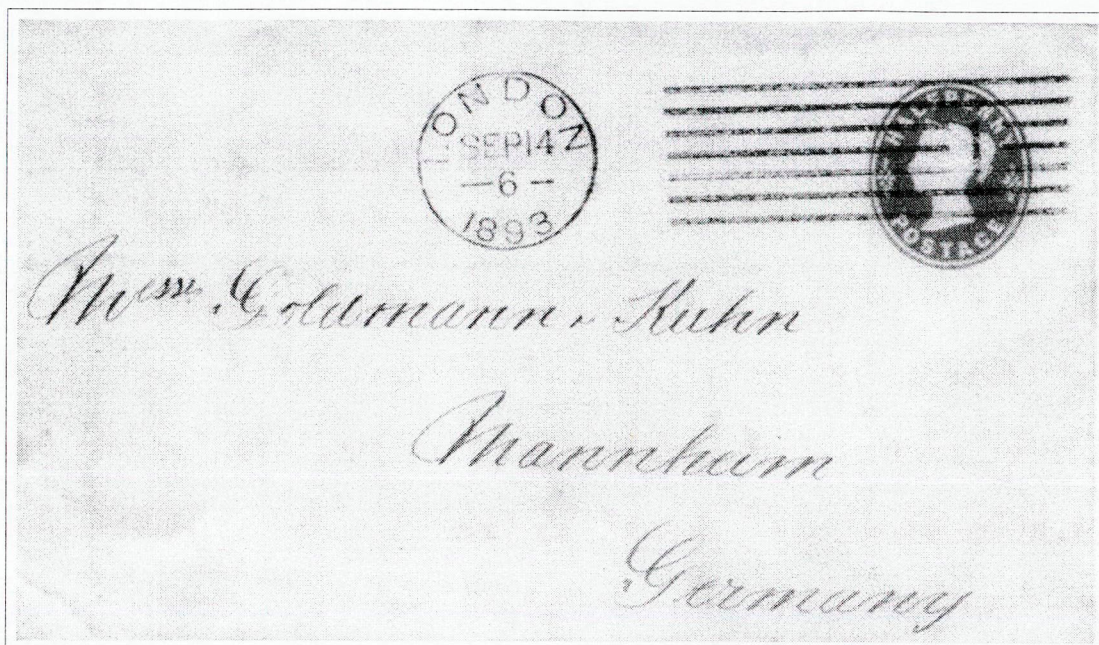 LONDON
SEP 14
— 6 —
1893
HALFPENNY
POSTAGE
Messrs Goldmann & Kuhn
Mannheim
Germany